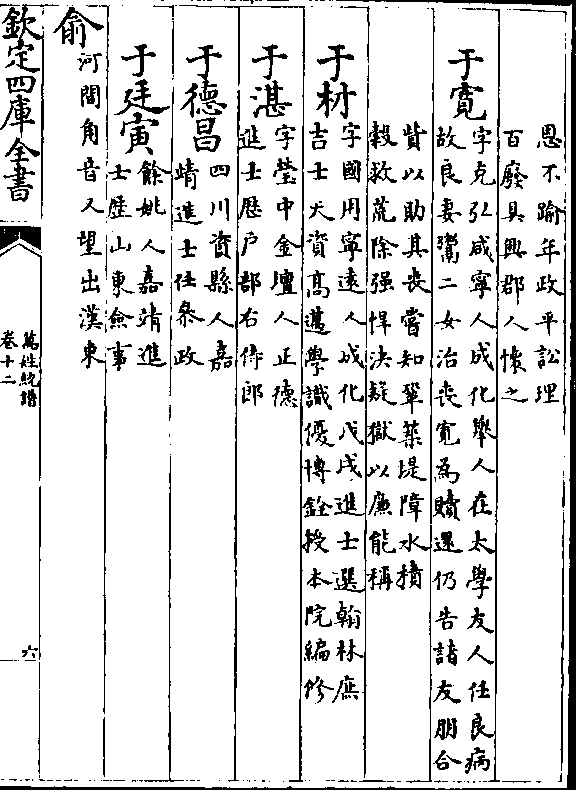 恩不踰年政平訟理
百廢具興郡人懷之
于寬
字克弘咸寧人成化舉人在太學友人任良病
故良妻鬻二女治喪寬為贖還仍告諸友朋合
貲以助其喪嘗知鞏築堤障水積
穀救荒除强悍決疑獄以廉能稱
于材
字國用寧遠人成化戊戌進士選翰林庶
吉士天資高邁學識優博銓授本院編修
于湛
字瑩中金壇人正德
進士歴户部右侍郎
于德昌
四川資縣人嘉
靖進士任叅政
于廷寅
餘姚人嘉靖進
士歴山東僉事
俞
河間角音又望出漢東
欽定四庫全書
萬姓統譜
卷十二
六